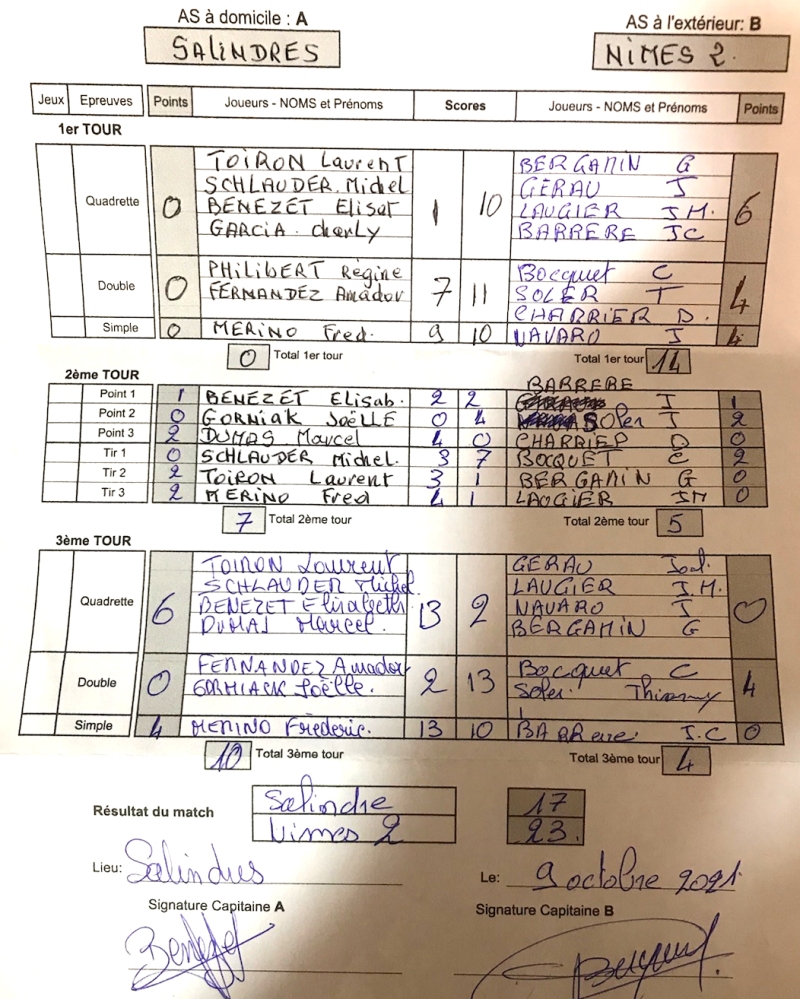 AS à domicile : A AS à l'extérieur: B
SALINDRES NIMES 2.
Jeux Epreuves Points Joueurs - NOMS et Prénoms Scores Joueurs - NOMS et Prénoms Points
1er TOUR
TOIRON Laurent BERGAMIN G
SCHLAUDER Michel GERAU J
Quadrette 0 BENEZET Elisat 1 10 LAUGIER J.M. 6
GARCIA charly BARRERE JC
PHILIBERT Régine Bocquet C
Double 0 FERNANDEZ Amador 7 11 SOLER T 4
CHARRIER D.
Simple 0 MERINO Fred. 9 10 NAVARO J 4
0 Total 1er tour Total 1er tour 14
2ème TOUR BARRERE
Point 1 1 BENEZET Elisab. 2 2 J 1
Point 2 0 GORNIAK JOËLLE 0 4 Soler J 2
Point 3 2 DUMAS Marcel 4 0 CHARRIER D 0
Tir 1 0 SCHLAUDER Michel. 3 7 BOCQUET C 2
Tir 2 2 TOIRON Laurent 3 1 BERGAMIN G 0
Tir 3 2 MERINO Fred 4 1 LAUGIER JM 0
7 Total 2ème tour Total 2ème tour 5
3ème TOUR
TOIRON Laurent GERAU Joël.
SCHLAUDER Michel LAUGIER J.M.
Quadrette 6 BENEZET Elisabeth 13 2 NAVARO J 0
DUMAS Marcel. BERGAMIN G
Double 0 FERNANDEZ Amador 2 13 Bocquet C 4
GORNIACK Joëlle. Soler. Thierry
Simple 4 MERINO Frederic. 13 10 BARRere J.C 0
10 Total 3ème tour Total 3ème tour 4
Résultat du match Salindre 17
Nimes 2 23.
Lieu: Salindres Le: 9 octobre 2021.
Signature Capitaine A Signature Capitaine B
Benezet